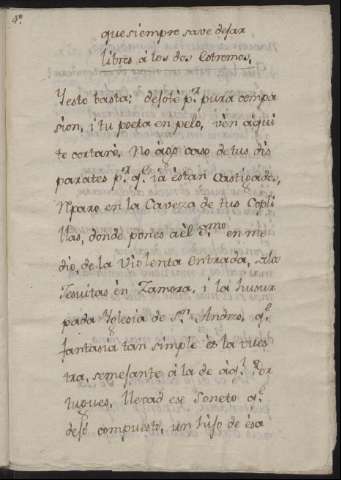 4º
que siempre save dejar
libres á los dos Estremos,
Y esto basta; dejote pr. pura compa
sion, i tu poeta en pelo, vèn aqui
te cortarè, No àgo caso de tus dis
parates pr. qe. ià èstan Castigados,
Nparo en la Caveza de tus Copli
llas, donde pones àèl en me
dio, de la Violenta entrada, àlos
Jesuitas èn Zamora, i la husur
pada Yglesia de Sn. Andres, qe.
fantasia tan simple ès la vues
tra, semejante à la de àql. Por
tugues, llevad ese Soneto qe.
dejo compuesto, un hijo de èsa